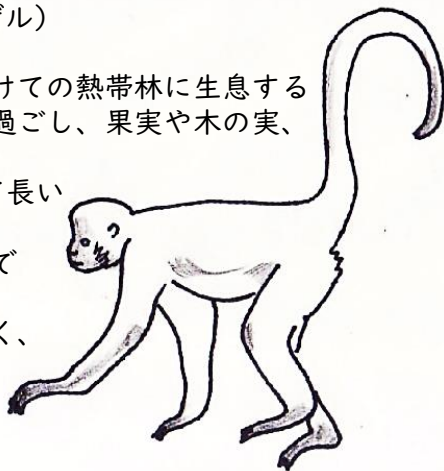 ル）
けての熱帯林に生息する
過ごし、果実や木の実、
長い
で
く、